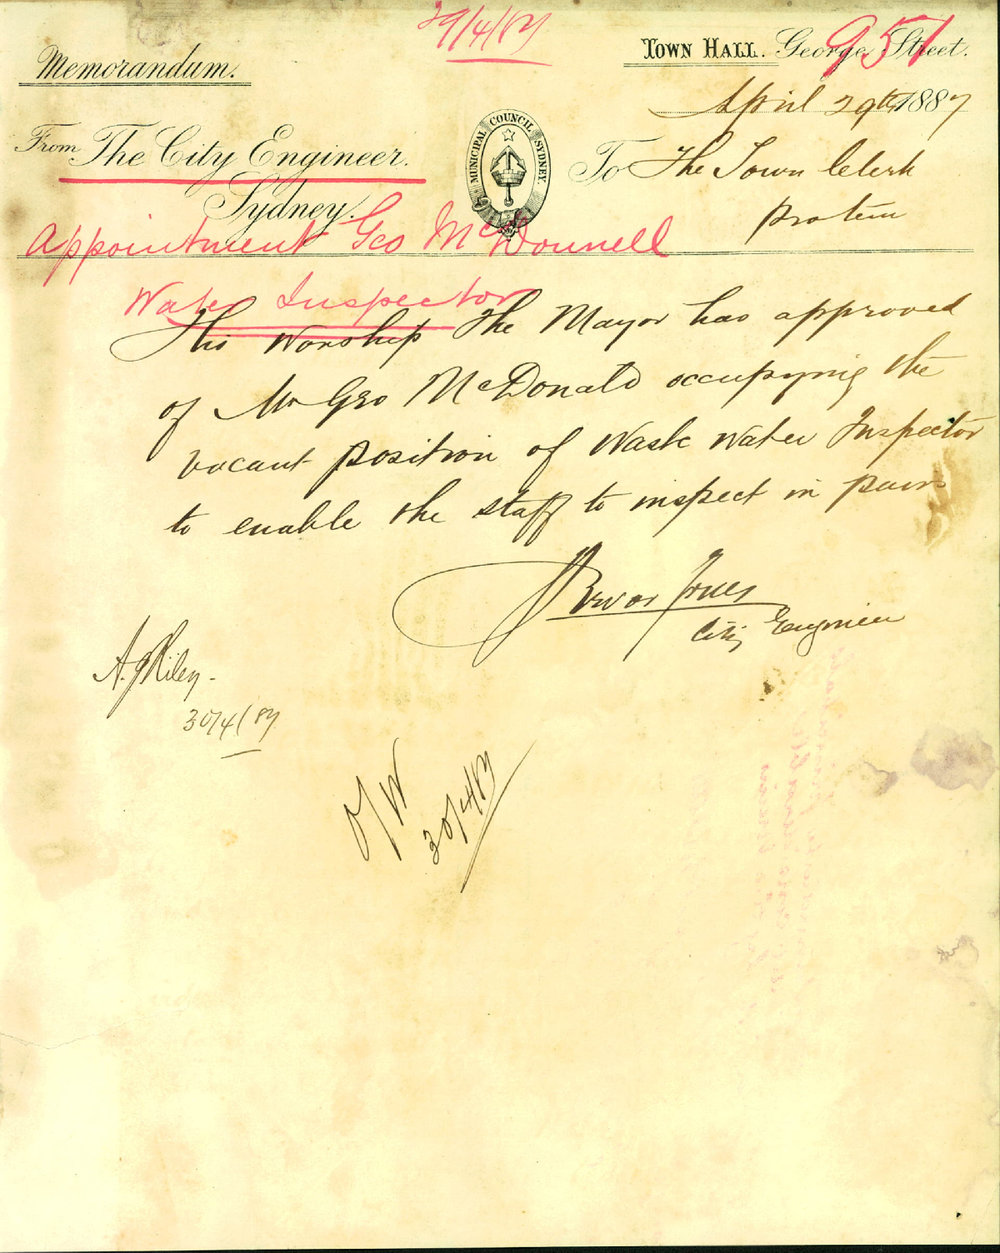 29/4/87
951
Memorandum.
TOWN HALL. George Street.
April 29th, 1887
From The City Engineer.
Sydney.
MUNICIPAL COUNCIL SYDNEY.
To The Town Clerk
protem
Appointment Geo McDonnell
Water Inspector
His Worship The Mayor has approved
of Mr Geo McDonald occupying the
vacant position of Waste Water Inspector
to enable the staff to inspect in pairs
Trevor Jones
City Engineer
A.J Riley -
30/4/87
O/W
30/4/87